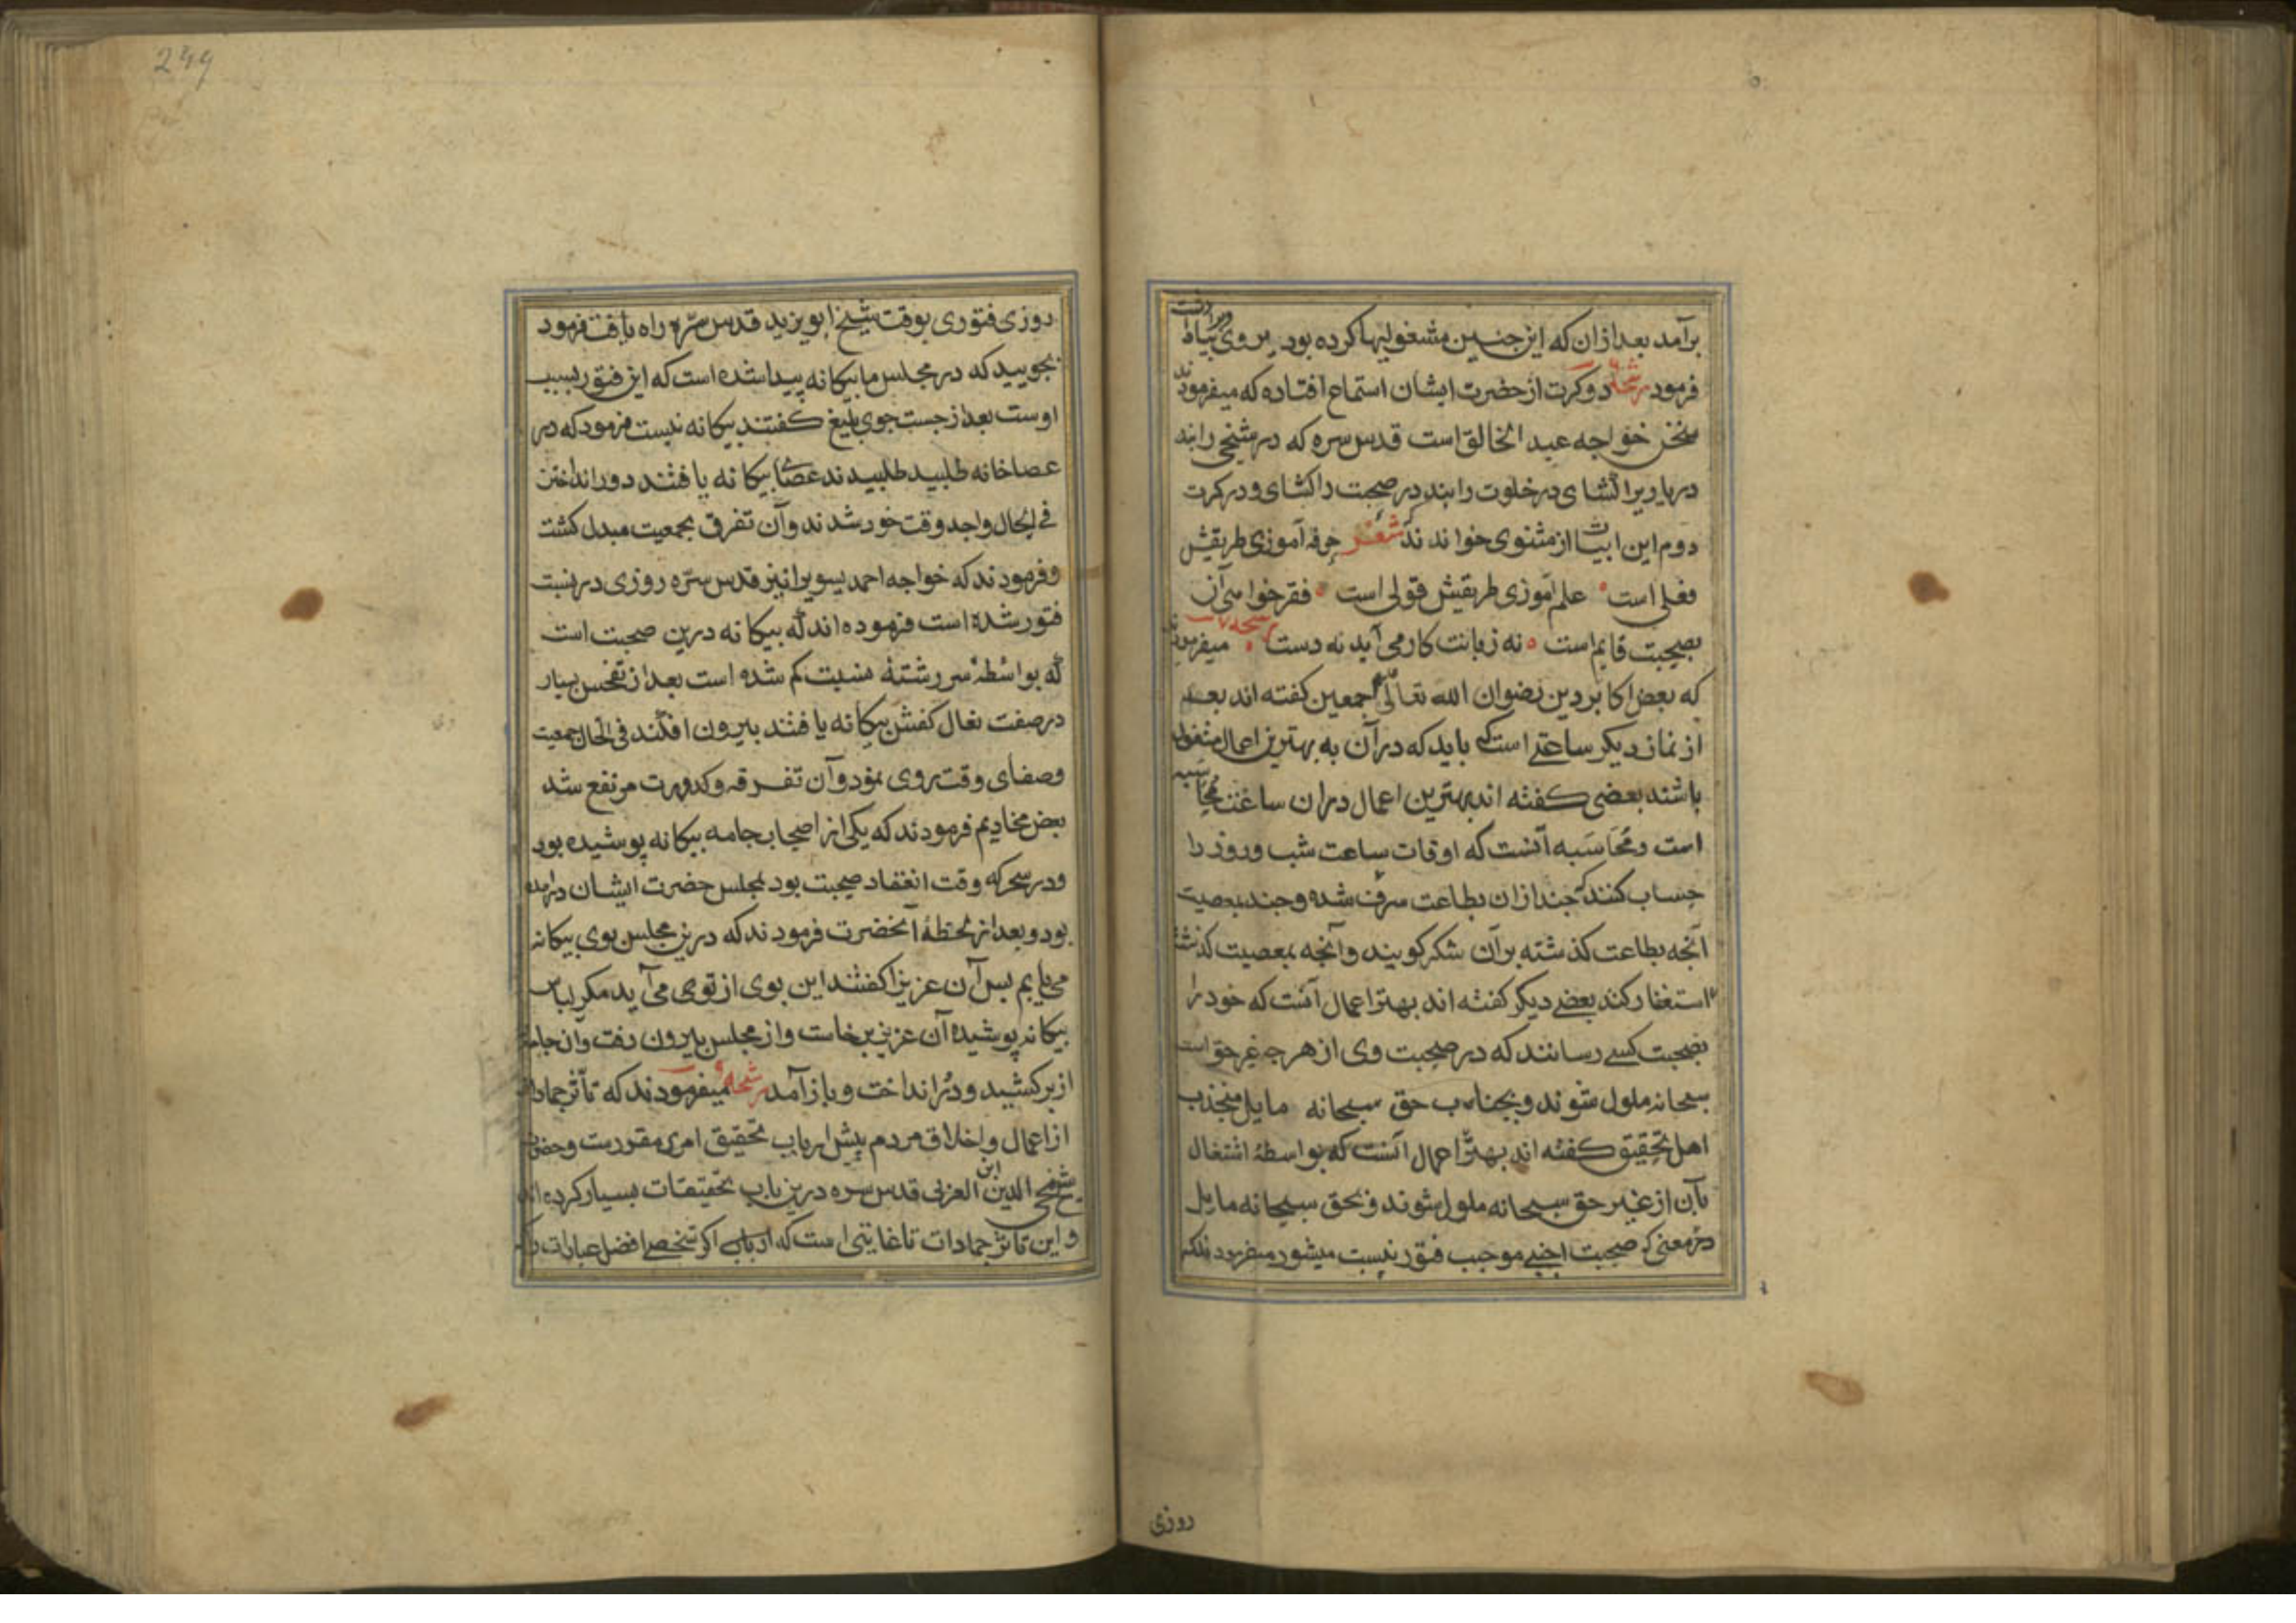 برآمد بعد ازان که این جنسین مشغولیها کرده بود بروی بیاط
فرمود رشحه دو کرت از حضرت ایشان استماع افتاده که میفرمودند
سخن خواجه عبد الخالق است قدس سره که در شیخی را بند
در یاریرا کشای در خلوت را بند در صحبت را کشای و در کرت
دوم این ابیات از مثنوی خواندند شعر حرفه آموزی طریقش
فعلی است علم آموزی طریقش قولی است فقر خواهی آن
بصحبت قایم است نه زبانت کار می آید نه دست رشحه میفرمودند
که بعض اکابر دین رضوان الله تعالی اجمعین کفته اند بعد
از نماز دیکر ساعتی است که باید که در آن به بهترین اعمال مشغول
باشند بعضی کفته اند بهترین اعمال دران ساعت محاسبه
است و محاسبه آنست که اوقات ساعت شب و روز را
حساب کنند که چند ازان بطاعت صرف شده و چند بمعصیت
آنچه بطاعت کذشته بر آن شکر کویند و آنچه بمعصیت کذشته
استغفار کند بعضی دیکر کفته اند بهتر اعمال آنست که خود را
بصحبت کسی رسانند که در صحبت وی از هر چه غیر حق است
سبحانه ملول شوند و بجناب حق سبحانه مایل منجذب
اهل تحقیق کفته اند بهتر اعمال آنست که بواسطهٔ اشتغال
بآن از غیر حق سبحانه ملول شوند و بحق سبحانه مایل
در معنی که صحبت اجنبی موجب فتور نسبت میشود میفرمودند که
روزی
249
روزی فتوری بوقت شیخ ابو یزید قدس سره راه یافت فرمود
بجویید که در مجلس ما بیکانه پیدا شده است که این فتور بسبب
اوست بعد از جست جوی بلیغ کفتند بیکانه نیست فرمود که در
عصاخانه طلبید طلبیدند عصای بیکانه یافتند دور انداختن
فی الحال واجد وقت خود شدند و آن تفرق بجمعیت مبدل کشت
و فرمودند که خواجه احمد یسویرا نیز قدس سره روزی در نسبت
فتور شده است فرموده اند که بیکانه درین صحبت است
که بواسطهٔ سر رشتهٔ نسبت کم شده است بعد از تفحص بسیار
در صفت نعال کفش بیکانه یافتند بیرون افکند فی الحال جمعیت
و صفای وقت روی نمود و آن تفرقه و کدورت مرتفع شد
بعض مخادیم فرمودند که یکی از اصحاب جامه بیکانه پوشیده بود
و در سحر که وقت انعقاد صحبت بود بمجلس حضرت ایشان درآمده
بود و بعد از لحظهٔ آنحضرت فرمودند که درین مجلس بوی بیکانه
می یابم بس آن عزیزرا کفتند این بوی از تو می آید مکر لباس
بیکانه پوشیده آن عزیز برخاست و از مجلس بیرون رفت و آن جامه
از بر کشید و دور انداخت و باز آمد رشحه میفرمودند که تأثر جمادات
از اعمال و اخلاق مردم پیش ارباب تحقیق امری مقررست و حضرت
شیخ محی الدین ابن العربی قدس سره درین باب تحقیقات بسیار کرده اند
و این تاثر جمادات تا غایتی است که ارباب اکر شخصی افضل عبادات را که